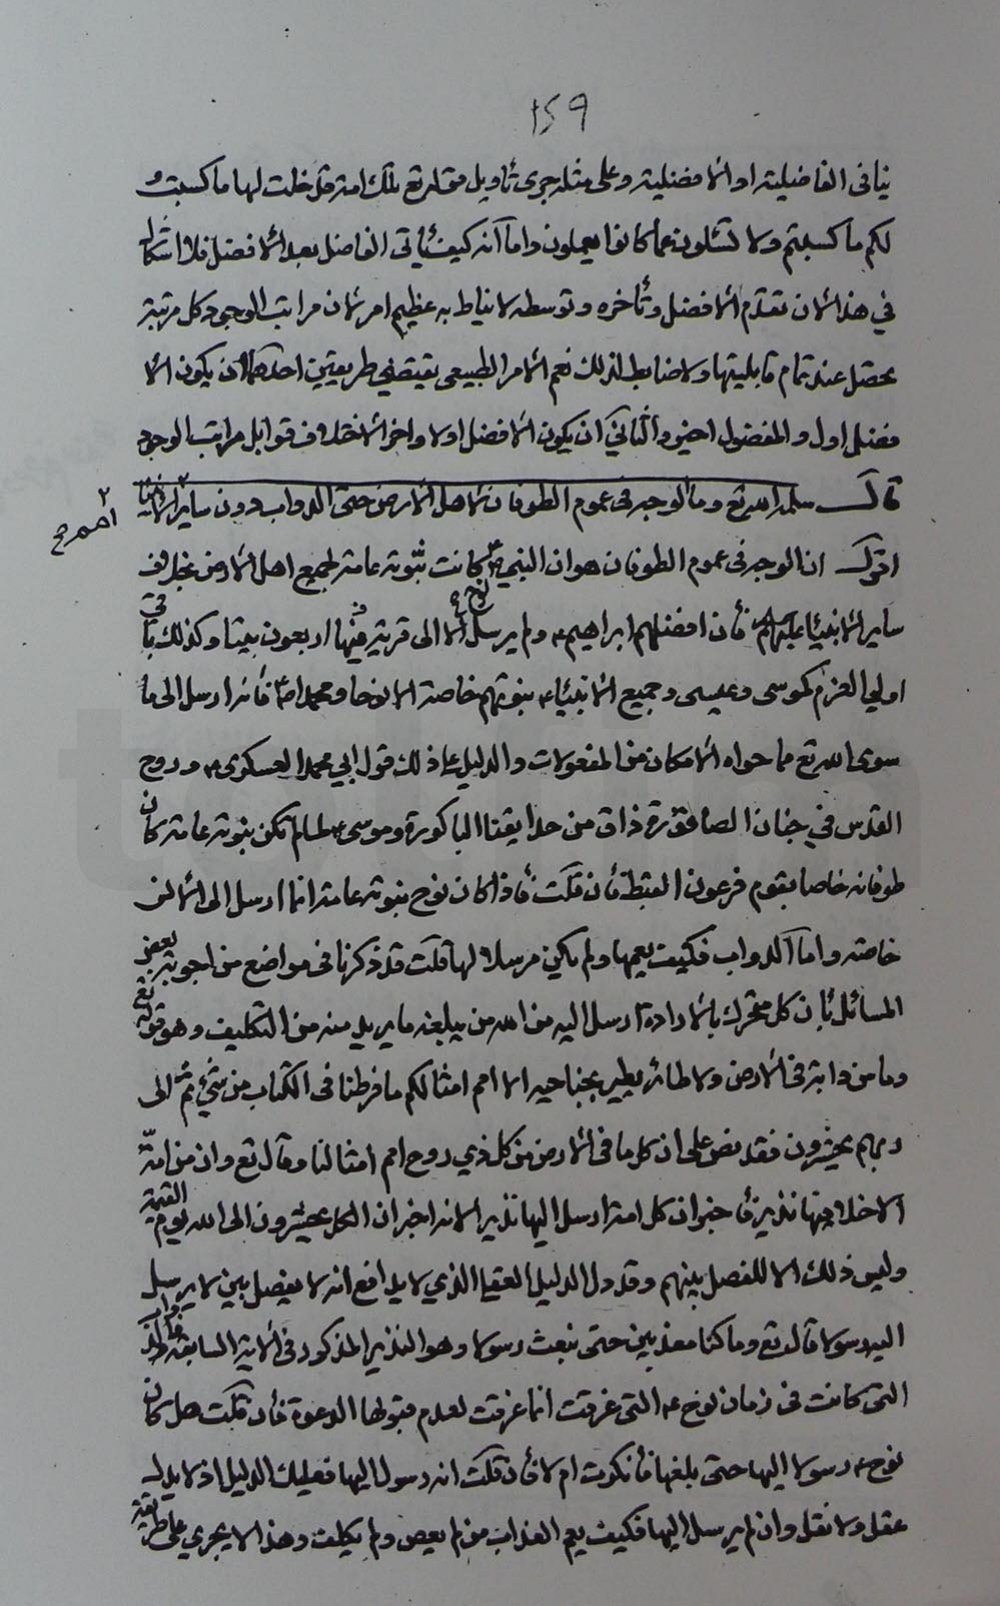 ١٤٩
ينافى الفاضلية او الافضلية وعلى مثله جرى تاويل قوله تع تلك امة قد خلت لها ما كسبت و
لكم ما كسبتم ولا تسئلون عما كانوا يعملون واما انه كيف ياتى الفاضل بعد الافضل فلا اشكال
في هذا لان تقدم الافضل وتأخره وتوسطه لا يناط به عظيم امر لان مراتب الوجود كل مرتبة
تحصل عند تمام قابليتها ولا ضابط لذلك نعم الامر الطبيعى يقتضي طريقين احدهما ان يكون الا
فضل اول والمفضول اخير والثاني ان يكون الافضل اولا واخر الاختلاف قوابل مراتب الوجود
قال سلمه الله تع وما الوجه فى عموم الطوفان لاهل الارض حتى الدواب دون ساير
اقول ان الوجه فى عموم الطوفان هو ان النبي نوح ع كانت نبوته عامة لجميع اهل الارض بخلاف
ساير الانبياء عليهم فان افضلهم ابراهيم ع ولم يرسل الا الى قرية فيها اربعون بيتا وكذلك باقى
اولي العزم كموسى وعيسى وجميع الانبياء نبوتهم خاصة الا نوحا ومحمدا ص فانه ارسل الى ما
سوى الله تع مما حواه الامكان من المفعولات والدليل على ذلك قول ابي محمد العسكرى ع وروح
القدس في جنان الصاقورة ذاق من حدايقنا الباكورة وموسى ع لما لم تكن نبوته عامة كان
طوفانه خاصا بقوم فرعون القبط فان قلت فاذا كان نوح نبوته عامة انما ارسل الى الانس
خاصة واما الدواب فكيف يعمها ولم يكن مرسلا لها قلت قد ذكرنا فى مواضع من اجوبة بعض
المسائل بان كل متحرك بالارادة ارسل اليه من الله من يبلغه ما يريد منه من التكليف وهو قوله تع
وما من دابة فى الارض ولا طائر يطير بجناحيه الا امم امثالكم ما فرطنا فى الكتاب من شيء ثم الى
ربهم يحشرون فقد نص على ان كل ما فى الارض من كل ذي روح امم امثالنا وقال تع وان من امة
الا خلا فيها نذير فاخبر ان كل امة ارسل اليها نذير الا انه اخبر ان الكل يحشرون الى الله يوم القيمة
وليس ذلك الا للفصل بينهم وقد دل الدليل العقلي الذي لا يدافع انه لا يفصل بين لا يرسل
اليه رسولا قال تع وما كنا معذبين حتى نبعث رسولا وهو النذير المذكور فى الاية السابقة فالدواب
التى كانت فى زمان نوح ع التى غرقت انما غرقت لعدم قبولها الدعوة فان قلت هل كان
نوح ع رسولا اليها حتى بلغها فانكرت ام لا فان قلت انه رسول اليها فعليك الدليل اذ لا يدل
عقل ولا نقل وان لم يرسل اليها فكيف يعم العذاب من لم يعص ولم يكلف وهذا لا يجري على طريقة